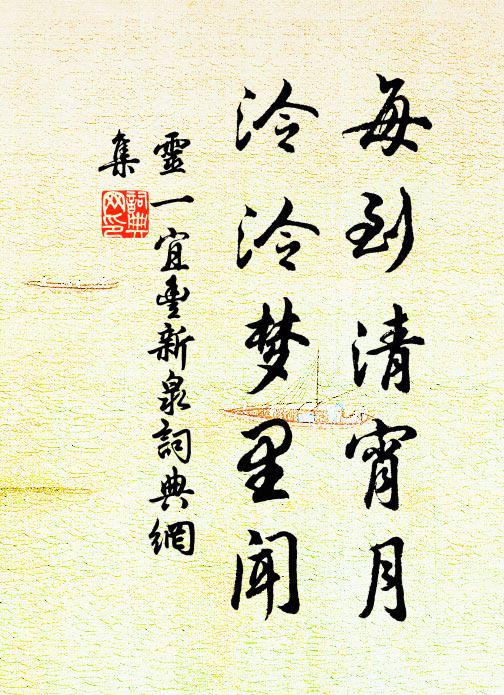 每到清宵月
泠泠梦里闻
靈一宜豐新泉詞典網
集
詞典
网印